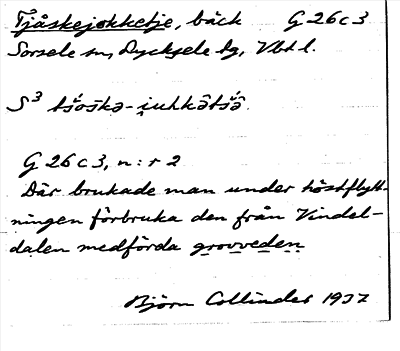 Tjåskejokketje, bäck G 26 c 3
Sorsele sn, Lycksele lg, Vbtl.
S³ tšoskə-
G 26 c 3, n : r 2
Där brukade man under höstflytt-
ningen förbruka den från Vindel-
dalen medförda grovveden
Björn Collinder 1937